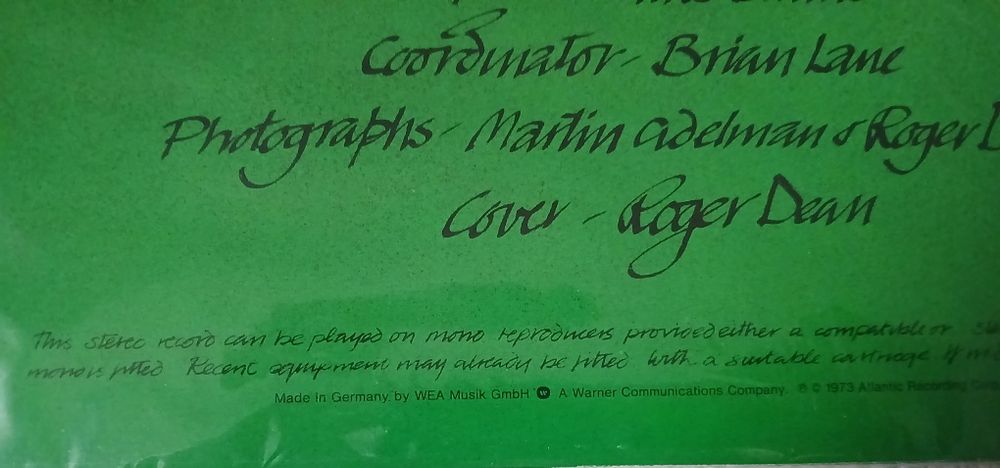 Coordinator - Brian Lane
Photographs - Martin Adelman & Roger D
Cover - Roger Dean
This stereo record can be played on mono reproducers provided either a compatible or
mono is fitted Recent equipment may already be fitted with a suitable cartridge. If
Made in Germany. by WEA Musik GmbH W A Warner Communications Company. ℗ © 1973 Atlantic Recording